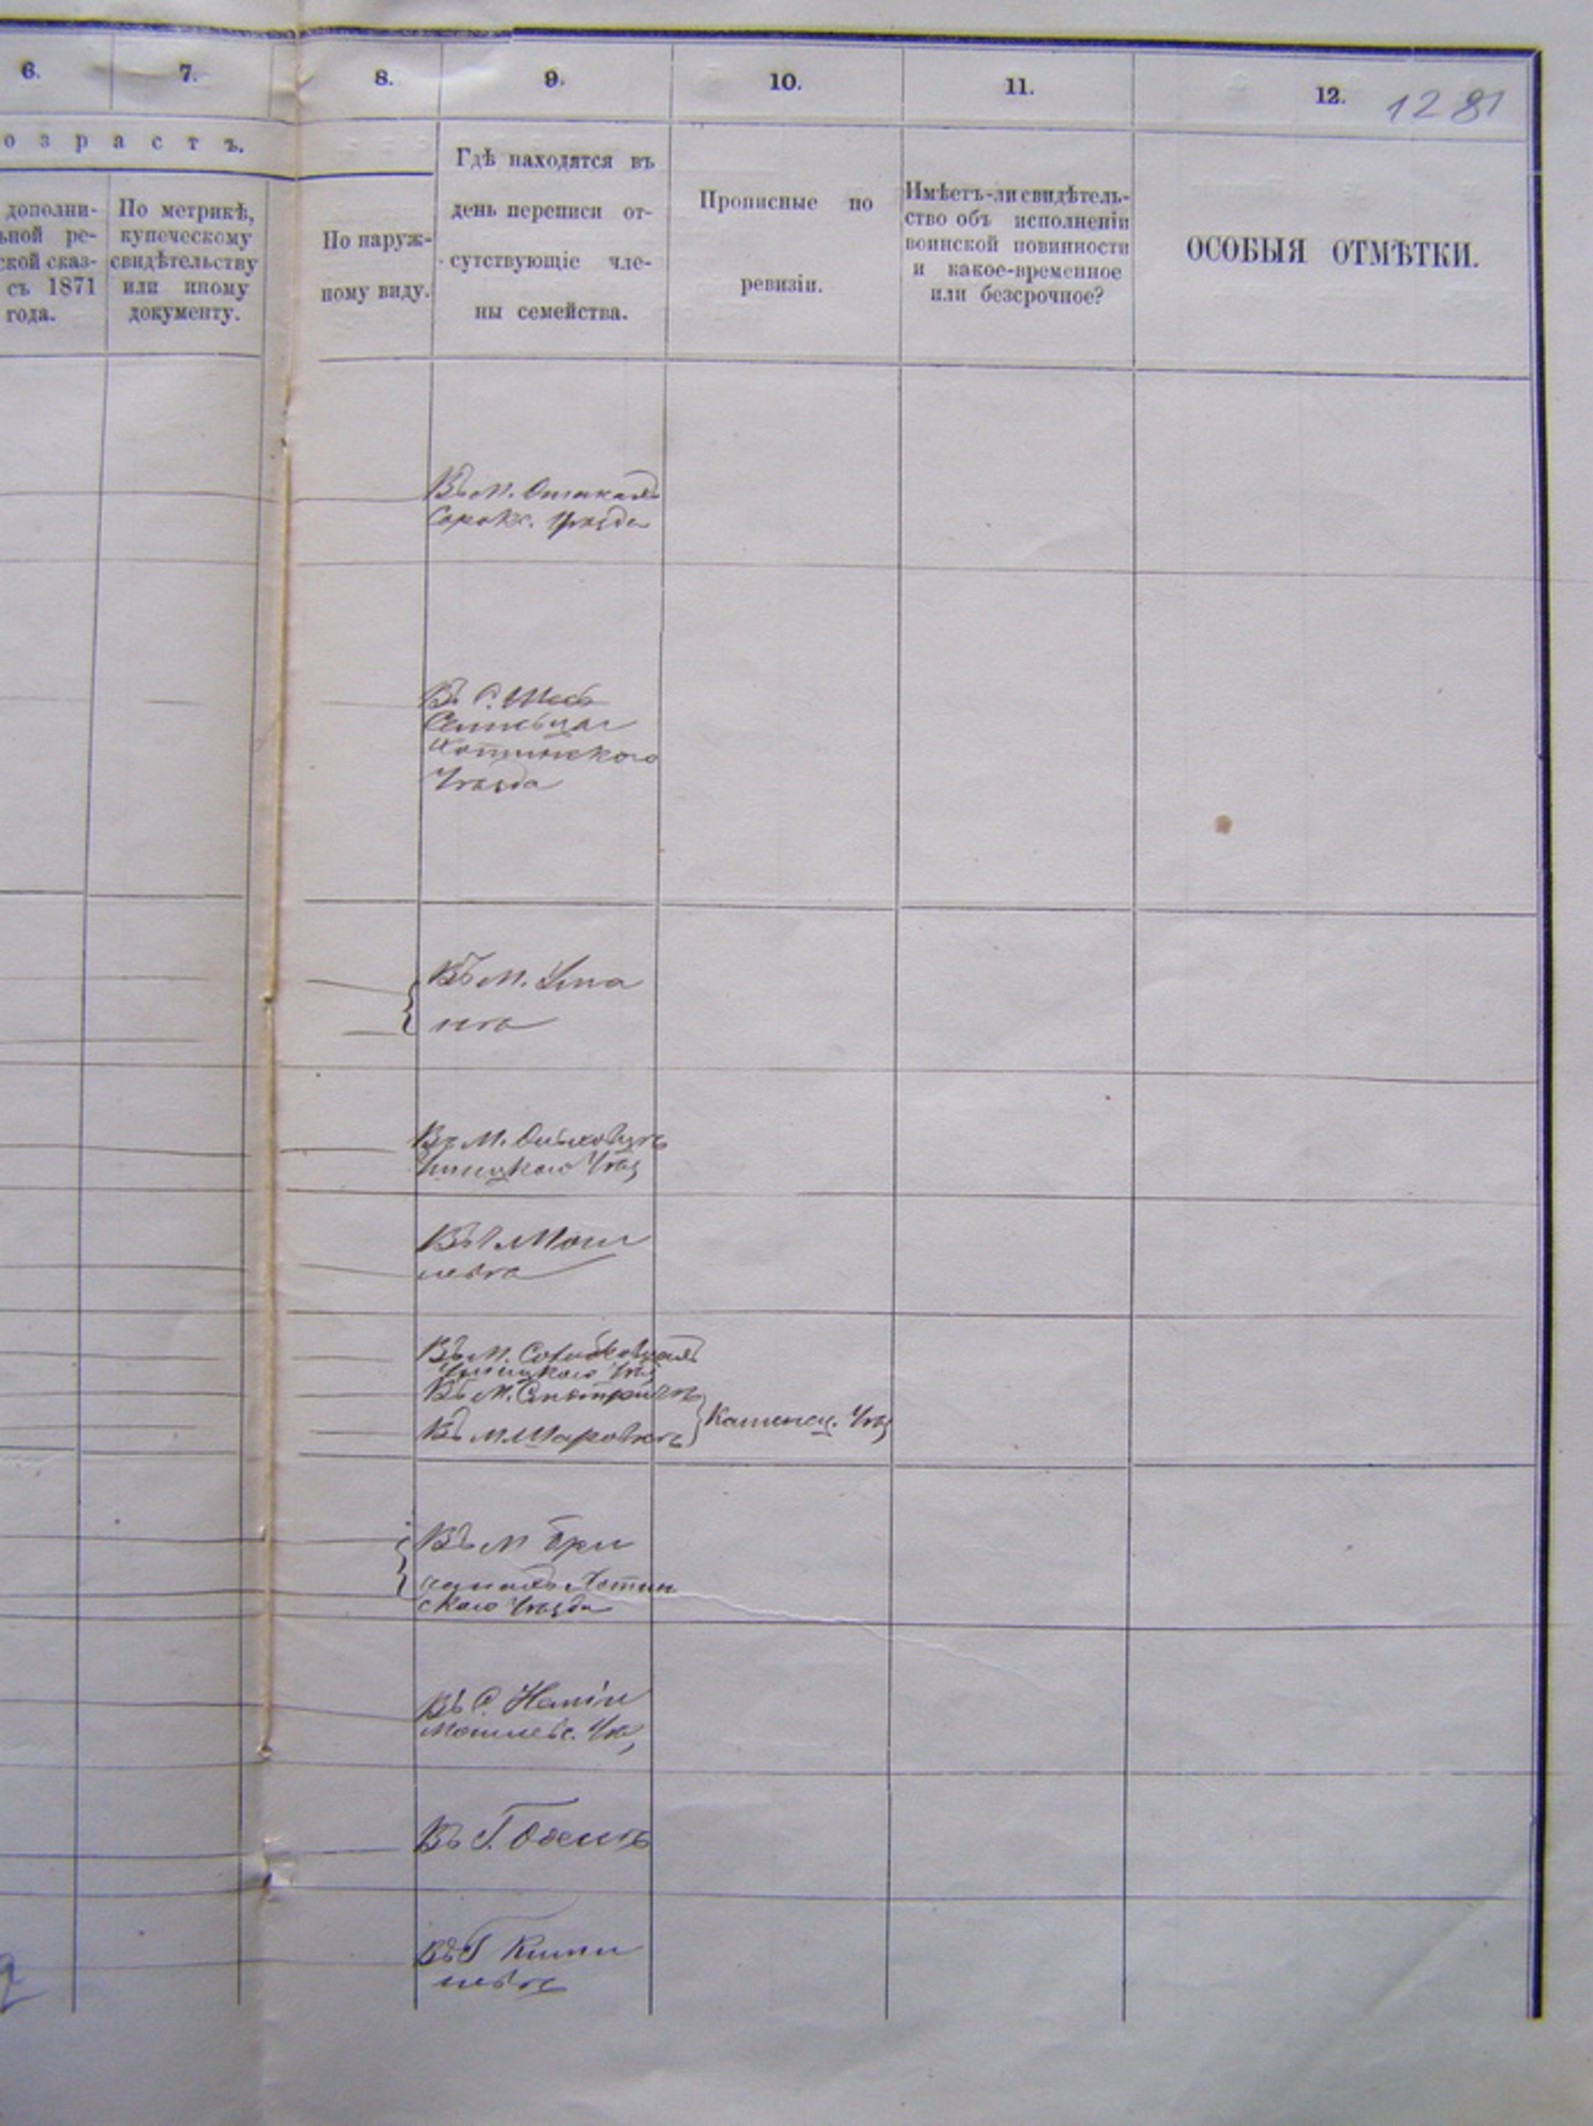 6.
7.
8.
9.
10.
11.
12.
1281
озрастъ.
дополни-
ьной ре-
ской сказ-
съ 1871
года.
По метрикѣ,
купеческому
свидѣтельству
или иному
документу.
По наруж-
ному виду.
Гдѣ находятся въ
день переписи от-
сутствующіе чле-
ны семейства.
Прописные по
ревизіи.
Имѣетъ-ли свидѣтель-
ство объ исполненіи
воинской повинности
и какое-временное
или безсрочное?
ОСОБЫЯ ОТМѢТКИ.
Въ м. Отакахъ
Сорокс. Уѣзда
Въ С.
Хотинскаго
Уѣзда
Въ м.
Въ М.
Ушицкаго Уѣз
Въ Г. Моги
левѣ
Въ м.
Ушицкаго Уѣз
Въ м. Смотричѣ
Въ м. Шаровкѣ
Каменец. Уѣз
Въ м Бри
чанахъ Хотин
скаго Уѣзда
Въ С.
Могилевс. Уѣз,
Въ Г. Одессѣ
Въ Г Киши
невѣ